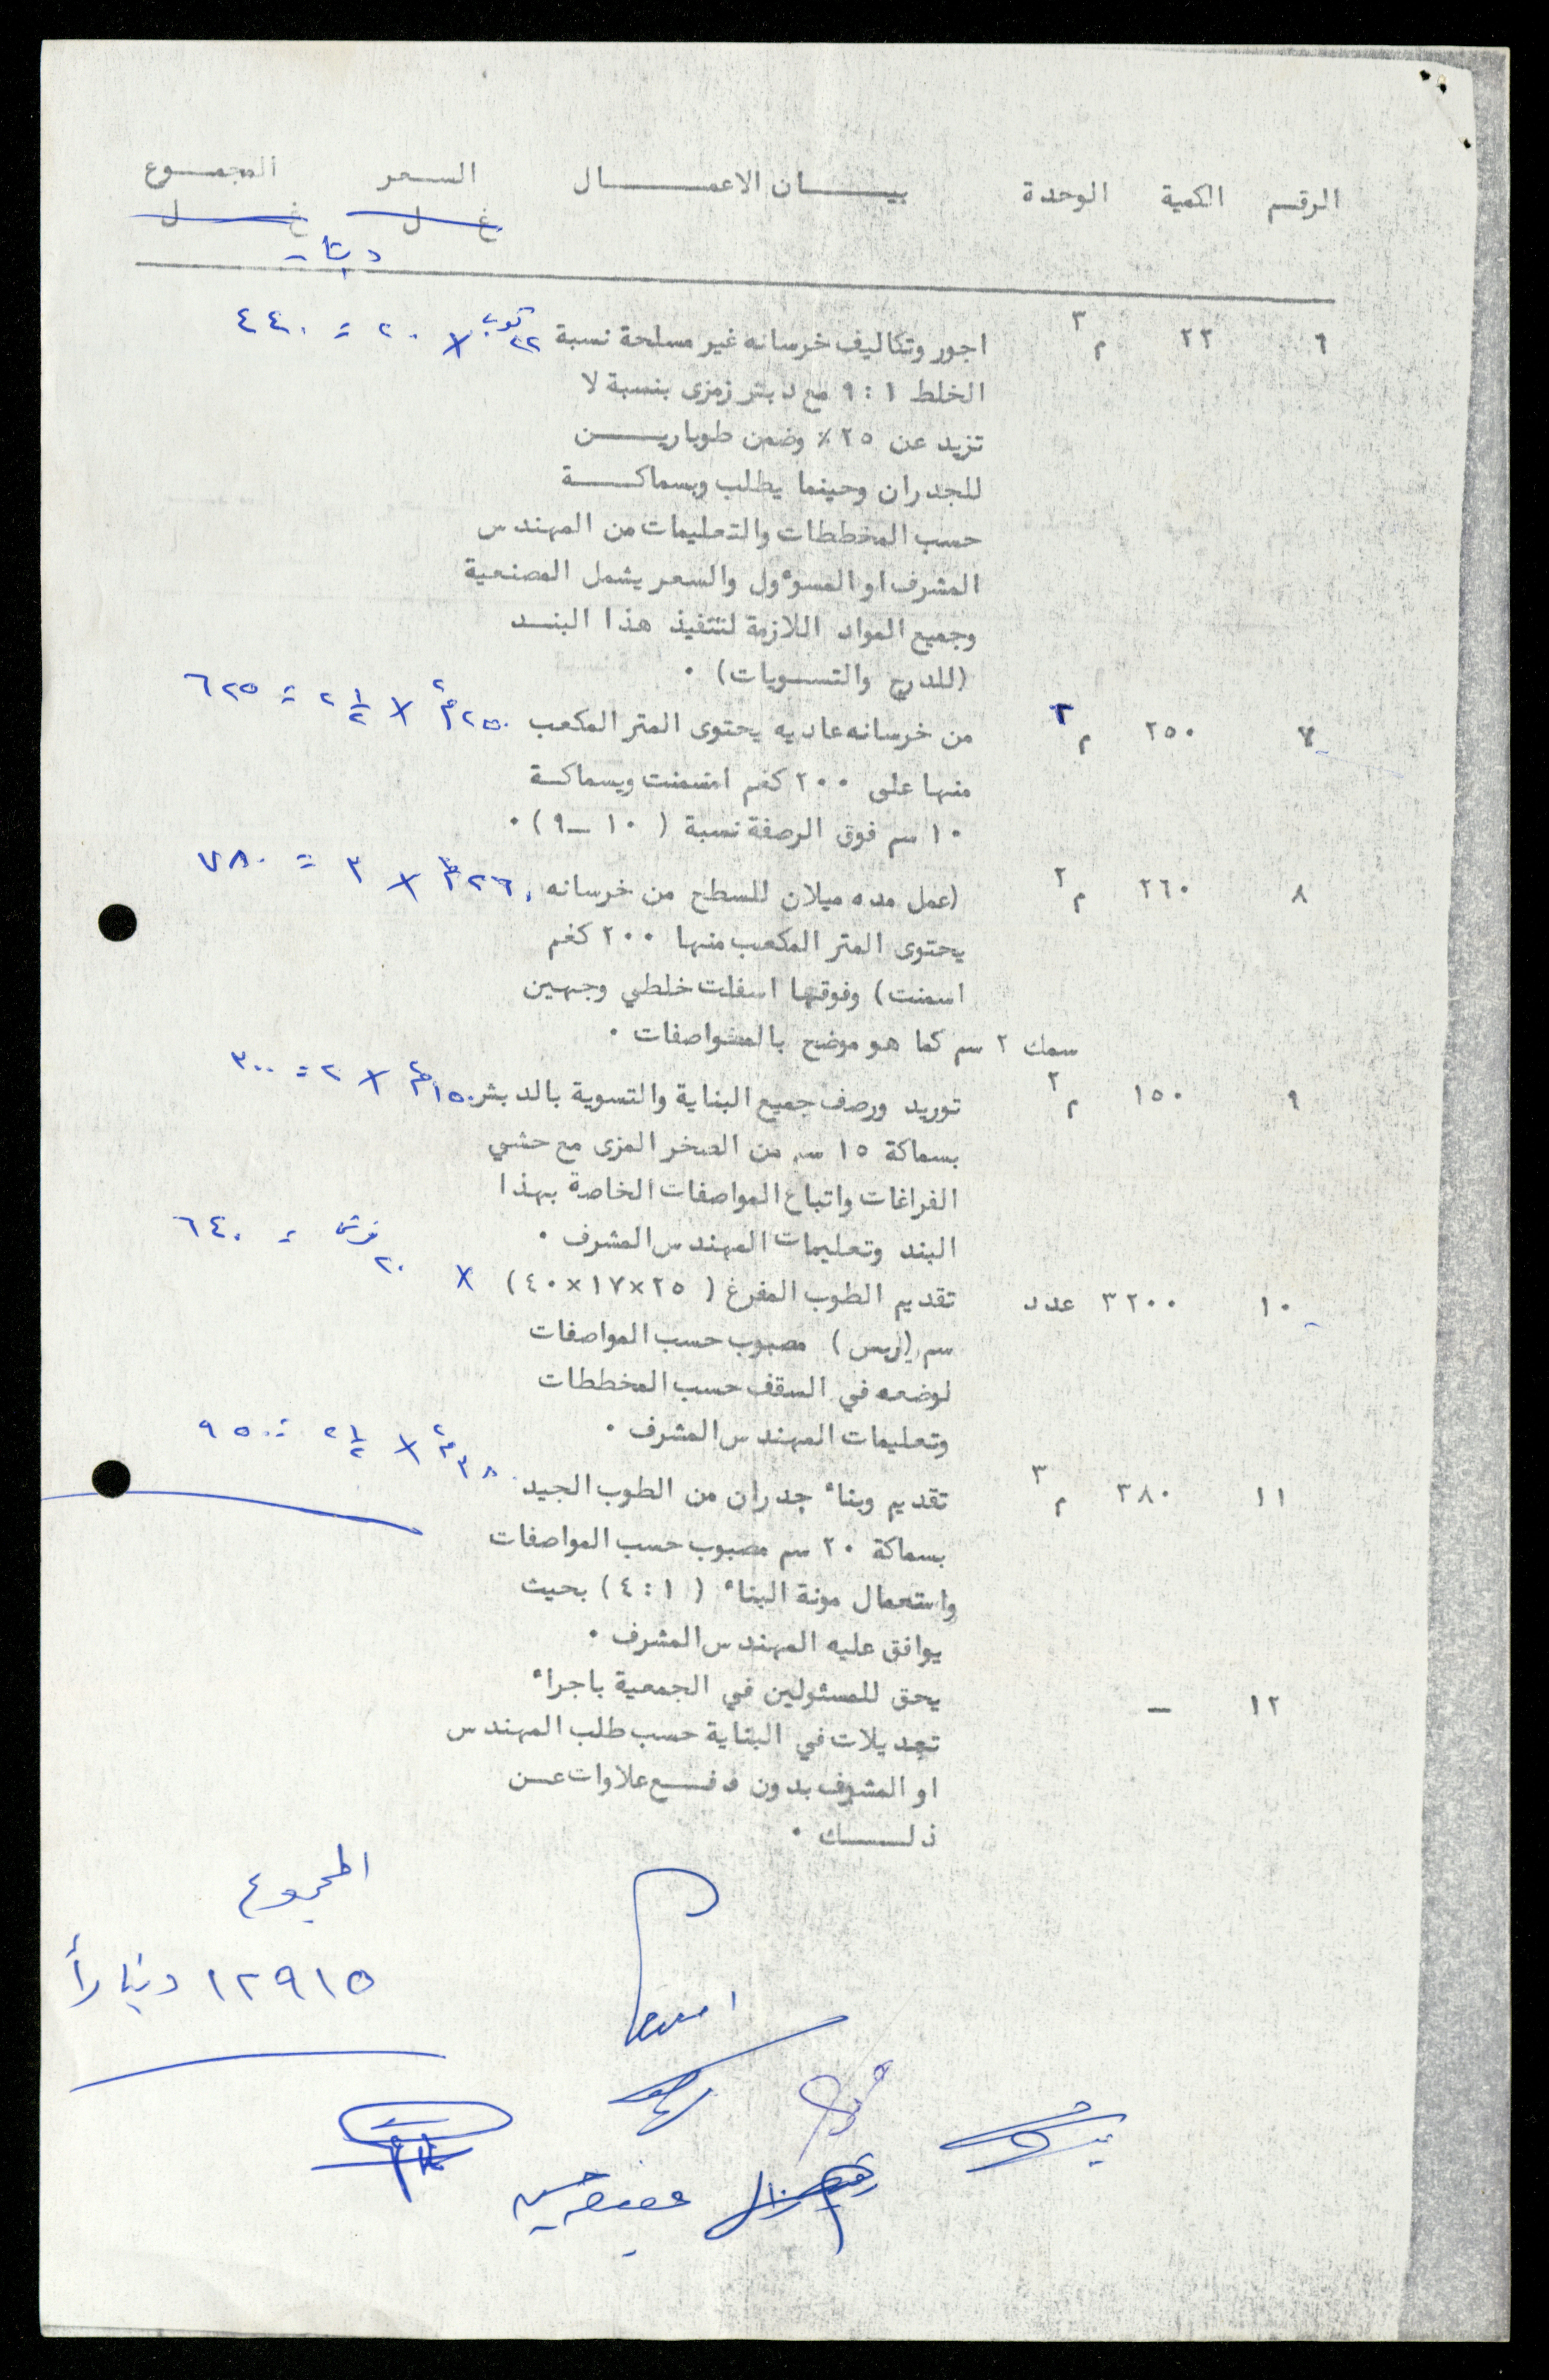 الرقم الكمية الوحدة بيــــــان الاعمــــــال السـعر المجمــوع
غ ل غ ل
دينار
٦ ٢٢ م٣ اجور وتكاليف خرسانه غير مسلحة نسبة ٢٢ كوب × ٢٠ = ٤٤٠
الخلط ١ : ٩ مع دبش زمزى بنسبة لا
تزيد عن ٢٥ ٪ وضمن طوباريـــن
للجدران وحينما يطلب وبسماكــة
حسب المخططات والتعليمات من المهندس
المشرف او المسوٴول والسعر يشمل المصنعية
وجميع المواد اللازمة لتنفيذ هذا البنــد
(للدرج والتســويات) .
٧ ٢٥٠ م٢ من خرسانه عاديه يحتوى المتر المكعب ٢٥٠ م٢ × ٢ ١/٢ = ٦٢٥
منها على ٢٠٠ كغم اسمنت وبسماكــة
١٠ سم فوق الرصفة نسبة ( ١٠ــ٩ ) .
٨ ٢٦٠ م٢ (عمل مده ميلان للسطح من خرسانه ٢٦٠ م٢ × ٣ = ٧٨٠
يحتوى المتر المكعب منها ٢٠٠ كغم
اسمنت) وفوقها اسفلت خلطي وجهين
سمك ٢ سم كما هو موضح بالمواصفات .
٩ ١٥٠ م٢ توريد ورصف جميع البناية والتسوية بالدبش ١٥٠ م٢ × ٢ = ٣٠٠
بسماكة ١٥ سم من الصخر المزى مع حشي
الفراغات واتباع المواصفات الخاصة بهذا
البند وتعليمات المهندس المشرف .
١٠ ٣٢٠٠ عدد تقديم الطوب المفرغ ( ٢٥×١٧×٤٠) × ٢٠ قرش = ٦٤٠
سم (ربس) مصبوب حسب المواصفات
لوضعه في السقف حسب المخططات
وتعليمات المهندس المشرف .
١١ ٣٨٠ م٣ تقديم وبناء جدران من الطوب الجيد ٣٨٠ م٢ × ٢ ١/٢ = ٩٥٠
بسماكة ٢٠ سم مصبوب حسب المواصفات
واستعمال مونة البناء ( ١ : ٤ ) بحيث
يوافق عليه المهندس المشرف .
١٢ ــ يحق للمسئولين في الجمعية باجراء
تعديلات في البناية حسب طلب المهندس
او المشرف بدون دفــع علاوات عــن
ذلــــك .
المجموع
١٢٩١٥ ديناراً